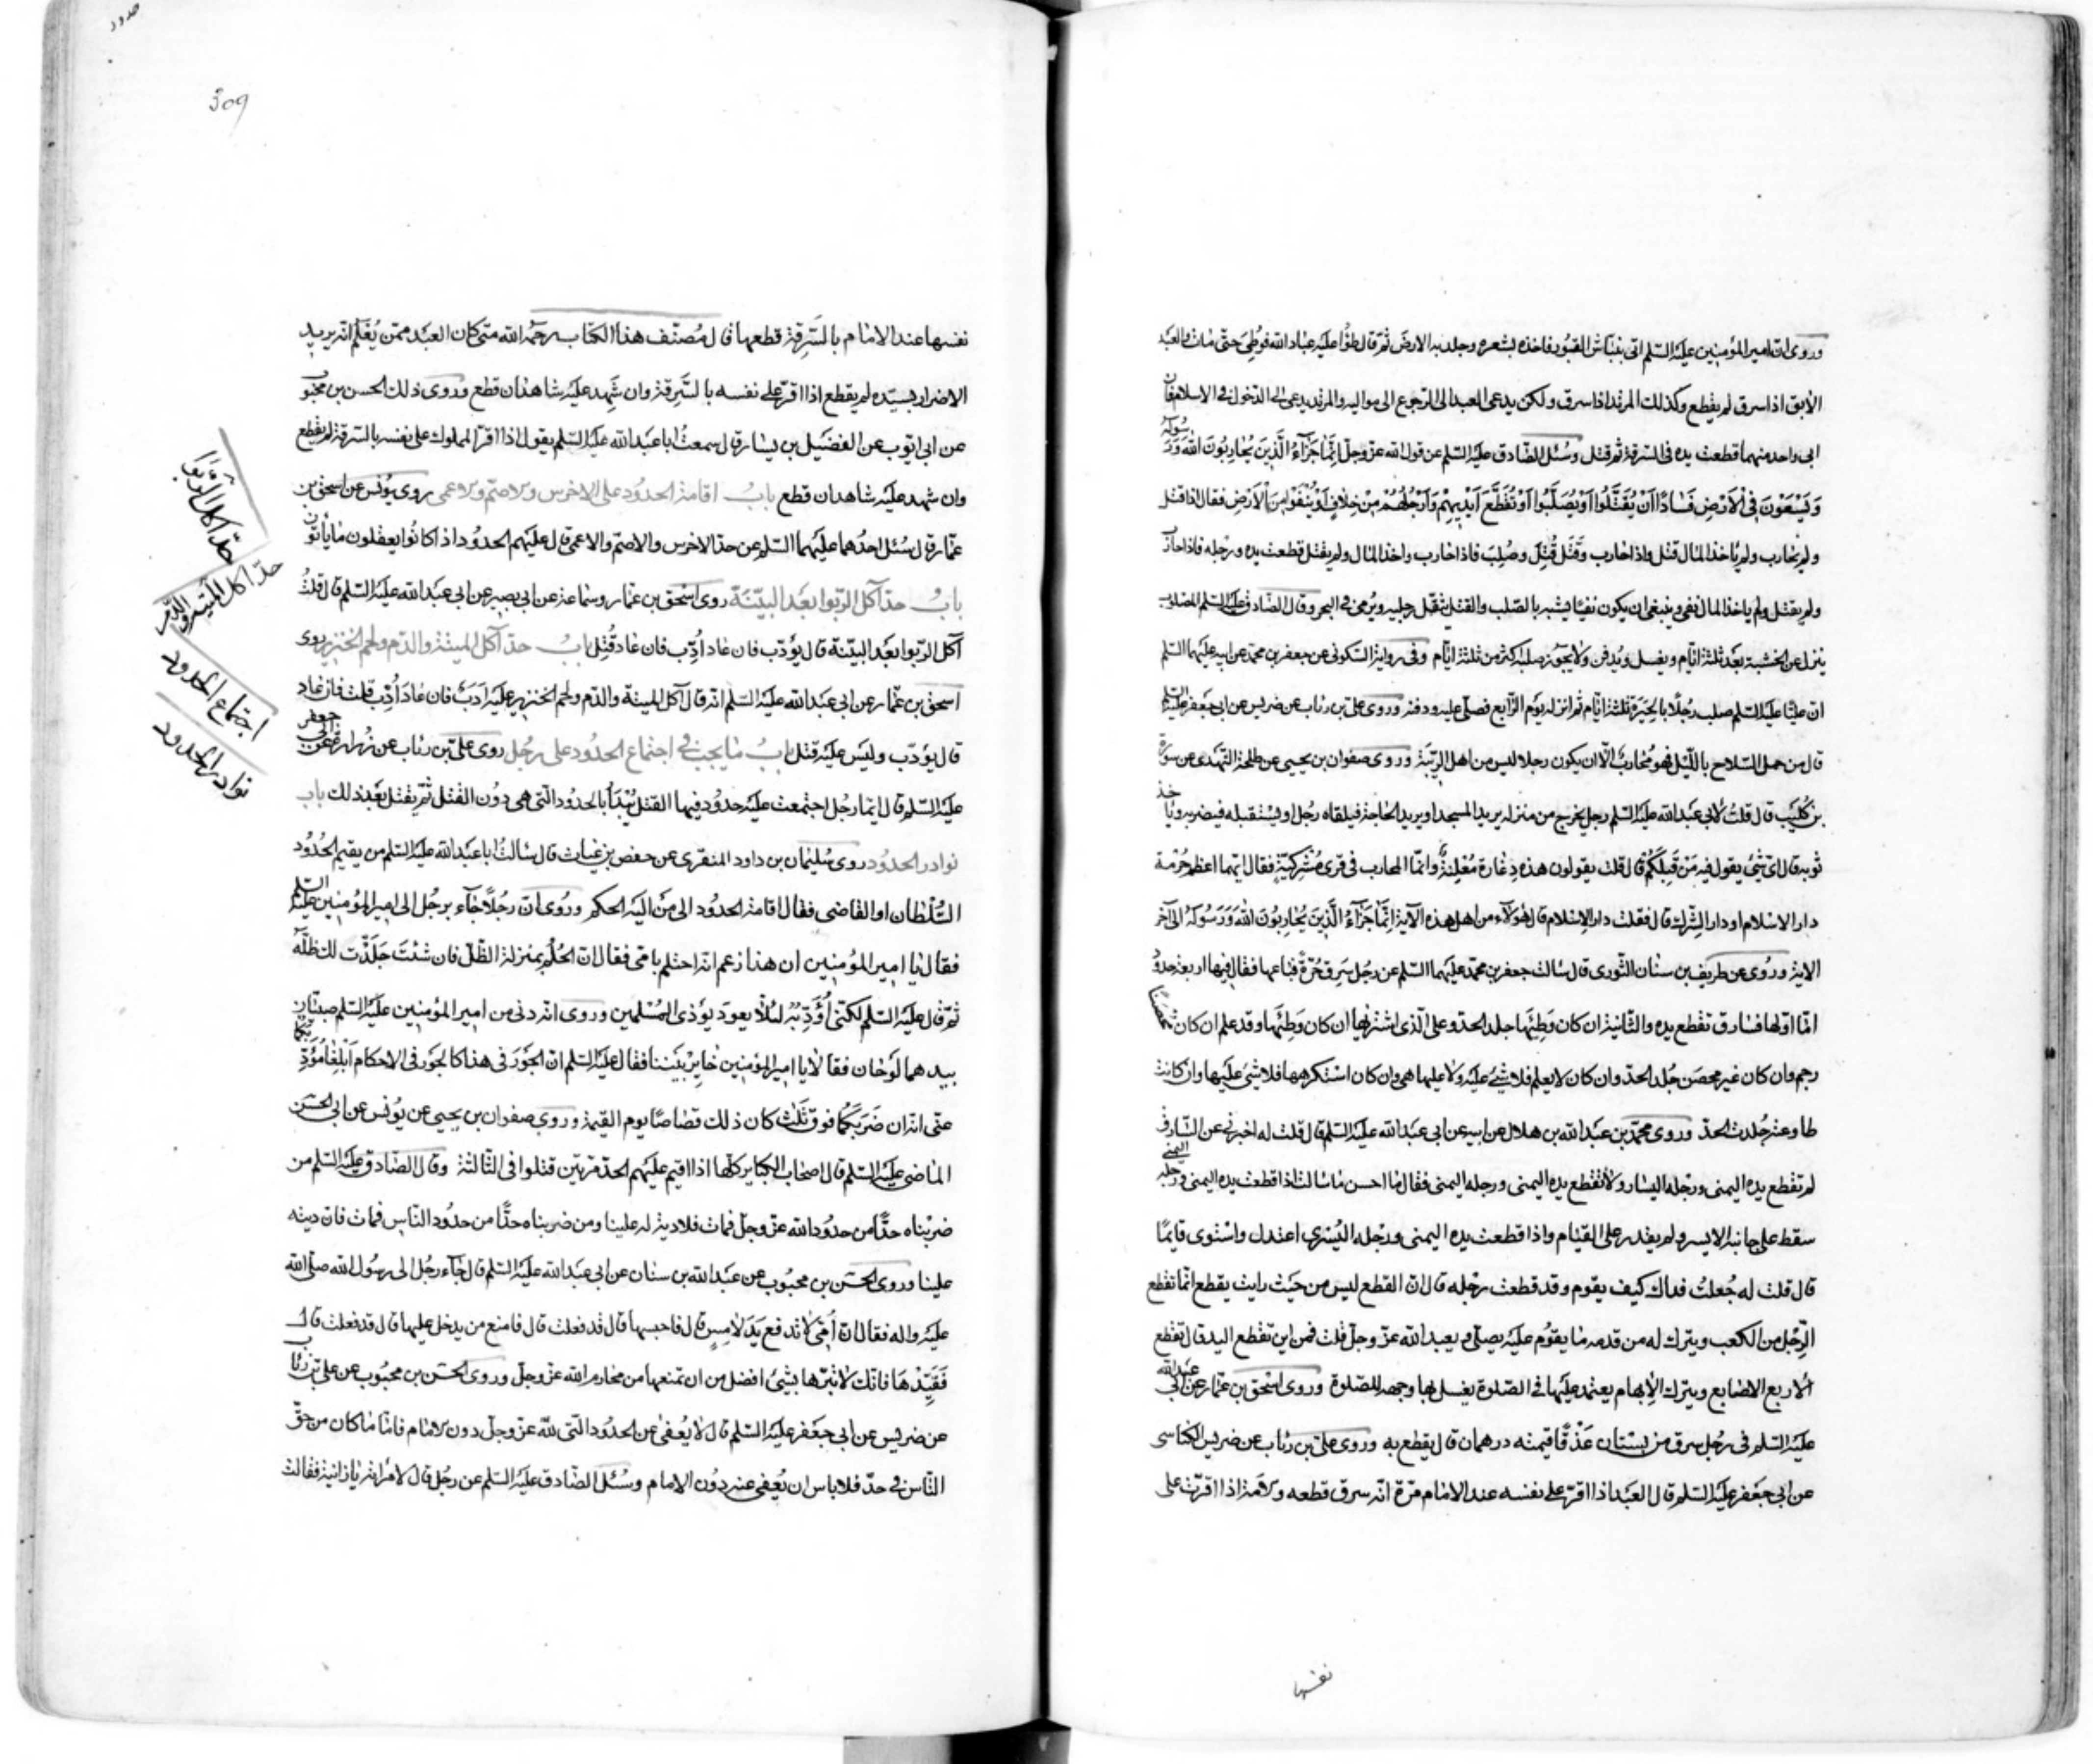 وروى ان امير المؤمنين عليه السلم اتى بنباش القبور فاخذه بشعره وجلد به الارض ثم قال طؤا عليه عباد الله فوطئ حتى مات والعبد
الآبق اذا سرق لم يقطع وكذلك المرتد اذا سرق ولكن يدعى العبد الى الرجوع الى مواليه والمرتد يدعى الى الدخول في الاسلام فان
ابى واحد منهما قطعت يده في السرقة ثم قتل وسئل الصادق عليه السلم عن قول الله عز وجل اِنَّمَا جَزَآءُ الَّذِينَ يُحَارِبُونَ اللّٰهَ وَرَسُولَهُ
وَيَسْعَوْنَ فِي الْاَرْضِ فَسَادًا اَنْ يُقَتَّلُوا اَوْ يُصَلَّبُوا اَوْ تُقَطَّعَ اَيْدِيهِمْ وَاَرْجُلُهُمْ مِنْ خِلَافٍ اَوْ يُنْفَوْا مِنَ الْاَرْضِ فقال اذا قتل
ولم يحارب ولم ياخذ المال قتل واذا حارب وقَتَل قُتِل وصُلِبَ فاذا حارب واخذ المال ولم يقتل قطعت يده ورجله فاذا حارب
ولم يقتل ولم ياخذ المال نفى وينبغى ان يكون نفيًا يشبه بالصلب والقتل تثقل رجليه ويرمى في البحر وقال الصادق عليه السلم المصلوب
ينزل عن الخشبة بعد ثلثة ايام ويغسل ويدفن ولا يجوز صلبه اكثر من ثلثة ايام وفي رواية السكونى عن جعفر بن محمد عن ابيه عليهما السلم
ان عليًا عليه السلم صلب رجلًا بالحيرة ثلثة ايام ثم انزله يوم الرابع فصلى عليه ودفنه وروى على بن رئاب عن ضريس عن ابى جعفر عليه السلم
قال من حمل السلاح بالليل فهو محارب الا ان يكون رجلا ليس من اهل الريبة وروى صفوان بن يحيى عن طلحة النهدى عن سورة
بن كليب قال قلت لابى عبد الله عليه السلم رجل يخرج من منزله يريد المسجد او يريد الحاجة فيلقاه رجل او يستقبله فيضربه وياخذ
ثوبه قال اىّ شئ يقول فيه من قبلكم قال قلت يقولون هذه دغارة معلنة وانما المحارب في قرى مشركية فقال ايهما اعظم حرمة
دار الاسلام او دار الشرك قال فقلت دار الاسلام قال هؤلاء من اهل هذه الآية اِنَّمَا جَزَآءُ الَّذِينَ يُحَارِبُونَ اللّٰهَ وَرَسُولَهُ الى آخر
الاية وروى عن طريف بن سنان الثورى قال سالت جعفر بن محمد عليهما السلم عن رجل سرق حرّة فباعها فقال فيها اربعة حدود
اما اوّلها فسارق تقطع يده والثانية ان كان وطئها جلد الحد وعلى الذى اشتراها ان كان وطئها وقد علم ان كان محصنًا
رجم وان كان غير محصن جُلد الحدّ وان كان لا يعلم فلا شئ عليه ولا عليها هى وان كان استكرهها فلا شئ عليها وان كانت
طاوعته جُلدت الحدّ وروى محمد بن عبد الله بن هلال عن ابيه عن ابى عبد الله عليه السلم قال قلت له اخبرنى عن السارق
لم تقطع يده اليمنى ورجله اليسار ولا تقطع يده اليمنى ورجله اليمنى فقال ما احسن ما سالت اذا قطعت يده اليمنى ورجله اليمنى
سقط على جانبه الايسر ولم يقدر على القيام واذا قطعت يده اليمنى ورجله اليُسْرى اعتدل واستوى قايمًا
قال قلت له جُعلت فداك كيف يقوم وقد قطعت رجله قال ان القطع ليس من حيث رايت يقطع انما تقطع
الرِّجل من الكعب ويترك له من قدمه ما يقوم عليه يصلّى ويعبد الله عز وجل قلت فمن اين تقطع اليد قال تقطع
الاربع الاصابع ويترك الابهام يعتمد عليها في الصلوة يغسل بها وجهه للصلوة وروى اسحق بن عمار عن ابى عبد الله
عليه السلم في رجل سرق من بستان عذقًا قيمته درهمان قال يقطع به وروى على بن رئاب عن ضريس الكناسى
عن ابى جعفر عليه السلم قال العبد اذا اقرّ على نفسه عند الامام مرّة انه سرق قطعه والامة اذا اقرّت على
نفسها
حدود
309
نفسها عند الامام بالسَّرِقَة قطعها قال مصنّف هذا الكتاب رحمه الله متى كان العبد ممن يُعْلَم انه يريد
الاضرار بسيّده لم يقطع اذا اقرّ على نفسه بالسَّرِقة وان شهد عليه شاهدان قطع وروى ذلك الحسن بن محبوب
عن ابى ايوب عن الفضيل بن يسار قال سمعت ابا عبد الله عليه السلم يقول اذا اقرّ المملوك على نفسه بالسرقة لم يقطع
وان شهد عليه شاهدان قطع باب اقامة الحدود على الاخرس والاصمّ والاعمى روى يونس عن اسحق بن
عمّار قال سئل احدهما عليهما السلم عن حدّ الاخرس والاصمّ والاعمى قال عليهم الحدود اذا كانوا يعقلون ما ياتون
باب حدّ آكل الربوا بعد البيّنة روى اسحق بن عمار وسماعة عن ابى بصير عن ابى عبد الله عليه السلم قال قلت
آكل الربوا بعد البيّنة قال يؤدّب فان عاد اُدّب فان عاد قُتِل باب حدّ آكل الميتة والدم ولحم الخنزير روى
اسحق بن عمّار عن ابى عبد الله عليه السلم انه قال آكل الميتة والدم ولحم الخنزير عليه ادب فان عاد اُدّب قلت فان عاد
قال يؤدّب وليس عليه قتل باب ما يجب في اجتماع الحدود على رجل روى على بن رئاب عن زرارة عن ابى جعفر
عليه السلم قال ايّما رجل اجتمعت عليه حدود فيها القتل يُبْدَأُ بالحدود التى هى دون القتل ثم يقتل بعد ذلك باب
نوادر الحدود روى سليمان بن داود المنقرى عن حفص بن غياث قال سالت ابا عبد الله عليه السلم من يقيم الحدود
السلطان او القاضى فقال اقامة الحدود الى من اليه الحكم وروى ان رجلًا جآء برجل الى امير المؤمنين عليه السلم
فقال يا امير المؤمنين ان هذا زعم انه احتلم بامّى فقال ان الحُلُم بمنزلة الظلّ فان شئت جَلَدْت لك ظلّه
ثم قال عليه السلم لكنّى أؤدّبه لئلّا يعود يؤذى المسلمين وروى انه دنى من امير المؤمنين عليه السلم صبيّان
بيدهما لوحان فقالا يا امير المؤمنين خاير بيننا فقال عليه السلم ان الجور في هذا كالجور في الاحكام ابلغا مؤدّبكما
عنّى انه ان ضربكما فوق ثلث كان ذلك قصاصًا يوم القيمة وروى صفوان بن يحيى عن يونس عن ابى الحسن
الماضى عليه السلم قال اصحاب الكباير كلّها اذا اقيم عليهم الحدّ مرّتين قتلوا في الثالثة وقال الصادق عليه السلم من
ضربناه حدًّا من حدود الله عز وجل فمات فلا دية له علينا ومن ضربناه حدًّا من حدود الناس فمات فان ديته
علينا وروى الحسن بن محبوب عن عبد الله بن سنان عن ابى عبد الله عليه السلم قال جآء رجل الى رسول الله صلى الله
عليه واله فقال ان اُمّى لا تدفع يد لامس قال فاحبسها قال قد فعلت قال فامنع من يدخل عليها قال قد فعلت قال
فَقَيِّدْهَا فانك لا تبرّها بشئ افضل من ان تمنعها من محارم الله عز وجل وروى الحسن بن محبوب عن على بن رئاب
عن ضريس عن ابى جعفر عليه السلم قال لا يُعْفى عن الحدود التى لله عز وجل دون الامام فامّا ما كان من حقّ
الناس في حدّ فلا باس ان يُعْفى عنه دون الامام وسئل الصادق عليه السلم عن رجل قال لامراته يا زانية فقالت
حدّ آكل الربوا
حدّ آكل الميتة والدم
اجتماع الحدود
نوادر الحدود